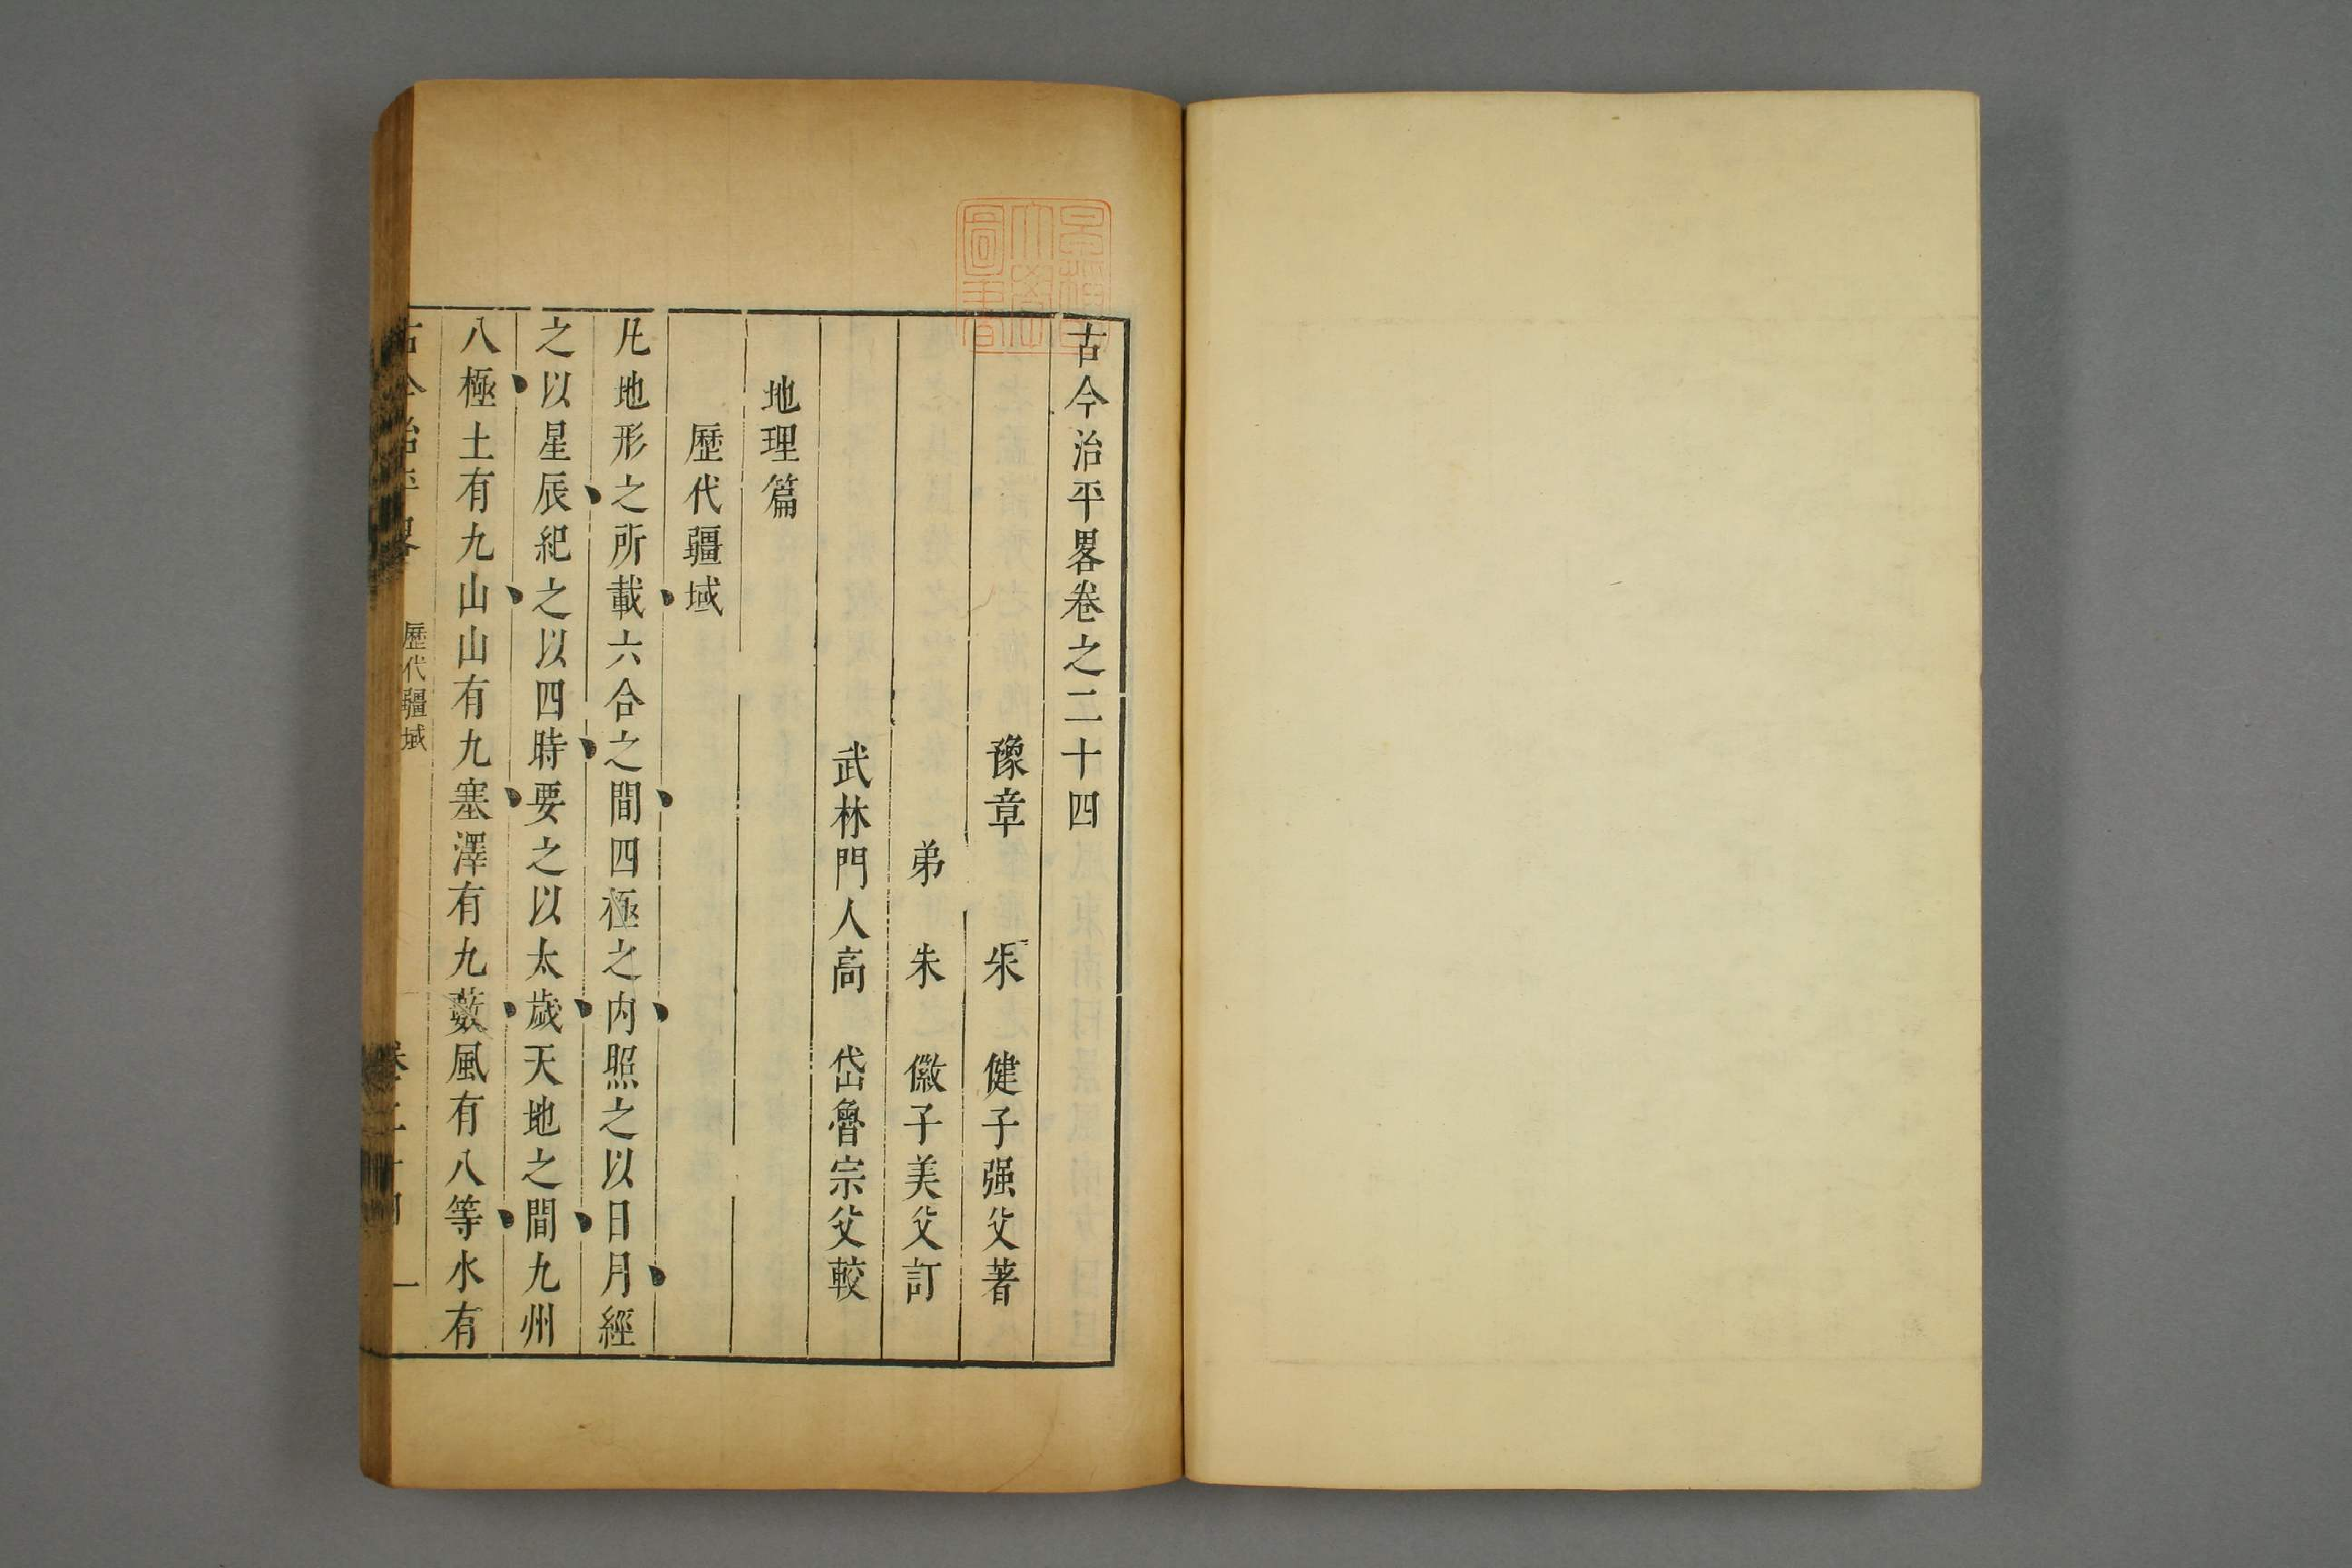 古今治平畧卷之二十四
豫章　朱　健子强父著
弟　朱　徽子美父訂
武林門人高　岱魯宗父較
地理篇
歷代疆域
凡地形之所載六合之間四極之内照之以日月經
之以星辰紀之以四時要之以太歲天地之間九州
八極土有九山山有九塞澤有九藪風有八等水有
古今治平畧　歷代疆域　卷二十四　一